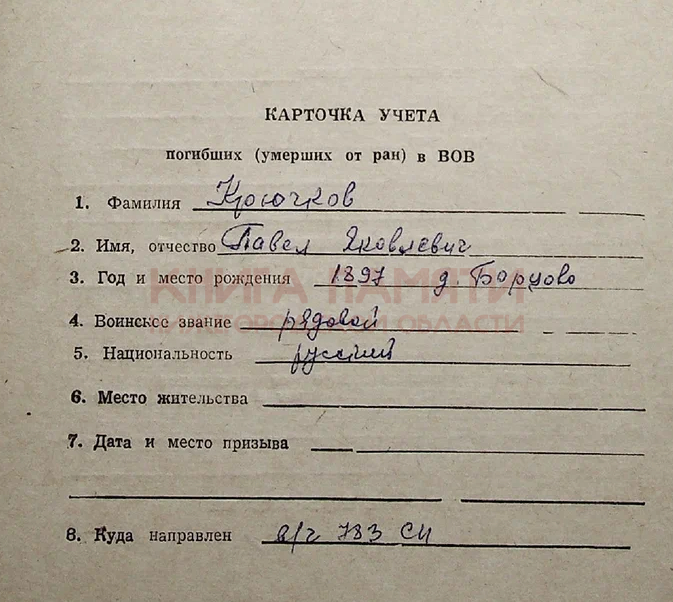 КАРТОЧКА УЧЕТА
погибших (умерших от ран) в ВОВ
1. Фамилия Крючков
2. Имя, отчество Павел Яковлевич
3. Год и место рождения 1897 д. Борцово
КНИГА ПАМЯТИ
4. Воинское звание рядовой
НИЖЕГОРОДСКОЙ ОБЛАСТИ
5. Национальность русский
6. Место жительства
7. Дата и место призыва
8. Куда направлен в/ч 783 СП